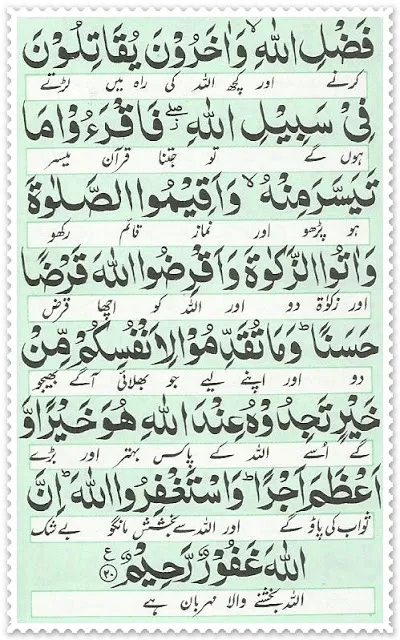 فَضْلِ اللّٰهِ ۙ وَاٰخَرُوْنَ يُقَاتِلُوْنَ
کرنے اور کچھ اللہ کی راہ میں لڑتے
فِيْ سَبِيْلِ اللّٰهِ ۖ فَاقْرَءُوْا مَا
ہوں گے تو جتنا قرآن میسر
تَيَسَّرَ مِنْهُ ۙ وَاَقِيْمُوا الصَّلٰوةَ
ہو پڑھو اور نماز قائم رکھو
وَاٰتُوا الزَّكٰوةَ وَاَقْرِضُوا اللّٰهَ قَرْضًا
اور زکوٰۃ دو اور اللہ کو اچھا قرض
حَسَنًا ؕ وَمَا تُقَدِّمُوْا لِاَنْفُسِكُمْ مِّنْ
دو اور اپنے لیے جو بھلائی آگے بھیجو
خَيْرٍ تَجِدُوْهُ عِنْدَ اللّٰهِ هُوَ خَيْرًا وَّ
گے اُسے اللہ کے پاس بہتر اور بڑے
اَعْظَمَ اَجْرًا ؕ وَاسْتَغْفِرُوا اللّٰهَ ؕ اِنَّ
ثواب کی پاؤ گے اور اللہ سے بخشش مانگو بے شک
اللّٰهَ غَفُوْرٌ رَّحِيْمٌ ﴿۲۰﴾ ع
اللہ بخشنے والا مہربان ہے